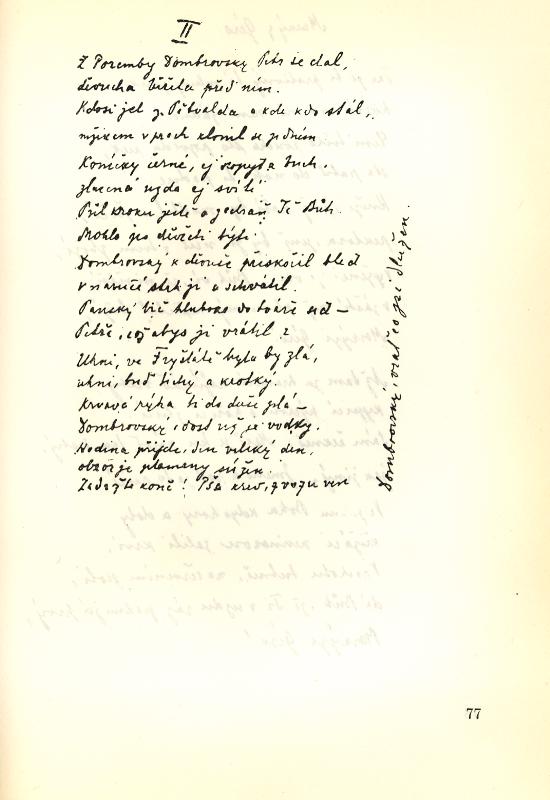 II
Z Poremby Dombrovský Petr se dal,
děvucha běžela před ním.
Kdosi jel z Pětvalda a kde kdo stál,
mžikem v prach klonil se jedním
Koníčky černé, ej kopyta buch.
zlacená uzda ej svítí
Půl kroku ještě a zachraň Tě Bůh.
Mohlo po děvčeti býti
Dombrovský k děvuše přiskočil hled
v náručí strh ji a uchvátil.
Panský bič hluboko do tváře sed –
Petře, což abys ji vrátil?
Uhni, ve Fryštátě bylo by zlá,
uhni, buď tichý a krotký.
Krvavá rýha ti do duše plá –
Dombrovský, dost už je vodky.
Hodina přijde, den veliký den,
obzor je plameny sežen.
Zadržte koně! Psa krev, z vozu ven
Dombrovský, vrať co jsi dlužen.
77